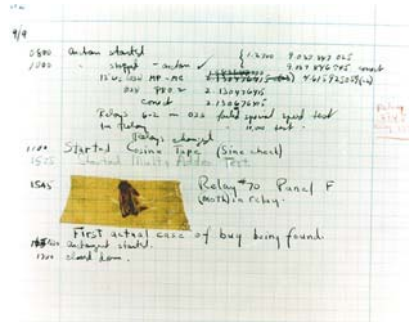 9/9
0800 antan started
1000 " stopped - antan ✓ { 1.2700 9.037 847 025
9.037 846 995 correct
13" uc (032) MP - MC 4.615925059(-2)
(033) PRO 2 2.130476415
correct 2.130676415
Relays 6-2 in 033 failed special speed test
in relay " 10.000 test.
Relays changed
1100 Started Cosine Tape (Sine check)
1525 Started Multi Adder Test.
1545 Relay #70 Panel F
(moth) in relay.
First actual case of bug being found.
antangent started.
1700 closed down.